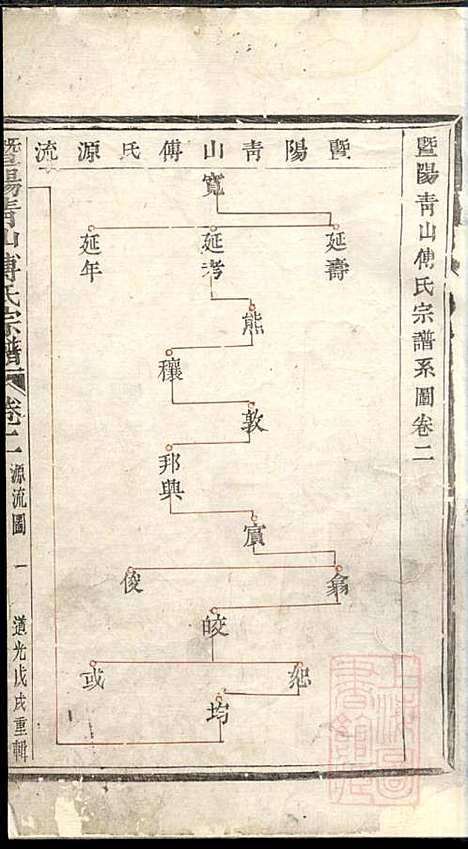 暨陽青山傅氏宗譜系圖卷二
暨陽青山傅氏源流
寬
延壽
延考
延年
熊
穰
敦
邦興
賔
翕
俊
皎
紀
或
均
暨陽青山傅氏宗譜
卷二
源流圖
一
道光戊戌重輯